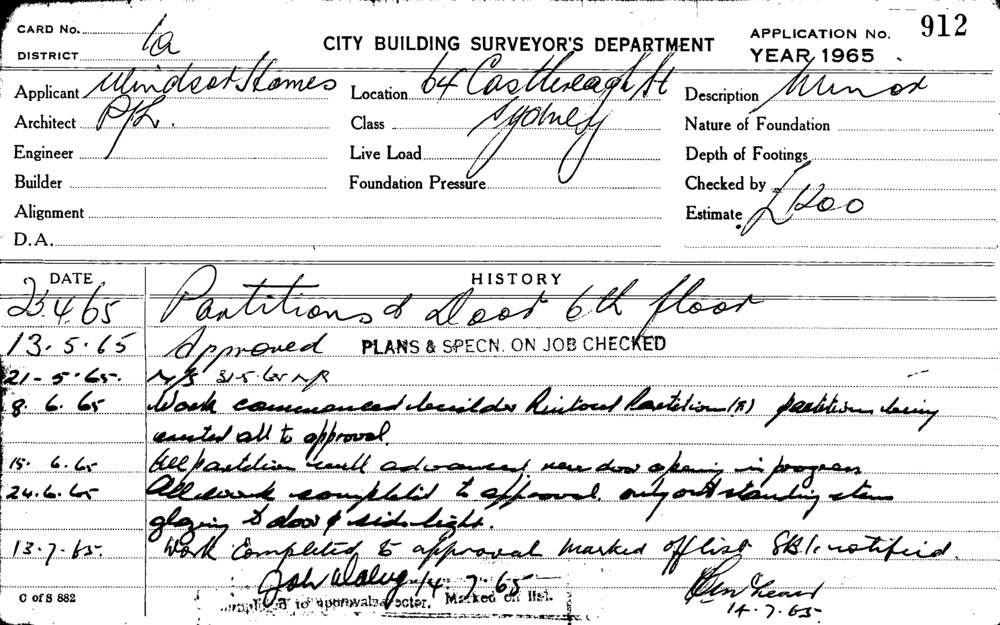 CARD No. 1a
DISTRICT
CITY BUILDING SURVEYOR'S DEPARTMENT
APPLICATION No. 912
YEAR 1965
Applicant Windsor Homes
Location 64 Castlereagh St
Description Minor
Architect P/L.
Class Sydney
Nature of Foundation
Engineer
Live Load
Depth of Footings
Builder
Foundation Pressure
Checked by
Alignment
Estimate £1200
D.A.
DATE HISTORY
23.4.65 Partitions & Door 6th floor
13.5.65 Approved PLANS & SPECN. ON JOB CHECKED
21-5-65. N/S 31.5.65 N/R
8.6.65 Work commenced builder Partition partitions being
erected all to approval.
15.6.65 All partition well advanced new door opening in progress
24.6.65 All work completed to approval. only outstanding item
glazing to door & sidelight.
13.7.65. Work Completed to approval marked off list notified.
Job 14.7.65
to approval Marked off list.
C of S 882
14.7.65